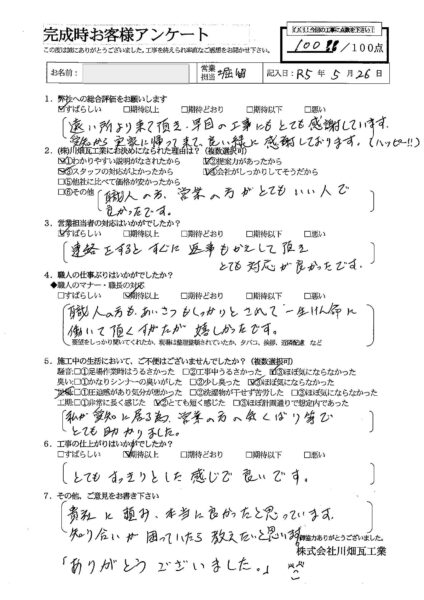 完成時お客様アンケート
この度は誠にありがとうございました。工事を終えられ率直なご感想をお聞かせ下さい。
ズバリ!!今回の工事に点数を下さい!
100!! /100点
お名前：
営業担当 堀留
記入日： R5 年 5 月 26 日
1. 弊社への総合評価をお願いします
☑すばらしい □期待以上 □期待どおり □期待以下 □悪い
遠い所より来て頂き、早目の工事にもとても感謝しています。
愛知から実家に帰って来て、良い様に感謝しております。(ハッピー!!)
2. (株)川畑瓦工業にお決めになられた理由は？（複数選択可）
☑①わかりやすい説明がなされたから ☑②提案力があったから
☑③スタッフの対応がよかったから ☑④会社がしっかりしてそうだから
□⑤他社に比べて価格が安かったから
□⑥その他
職人の方、営業の方がとてもいい人で
良かったです。
3. 営業担当者の対応はいかがでしたか？
☑すばらしい □期待以上 □期待どおり □期待以下 □悪い
連絡をするとすぐに返事もかえして頂き
とても対応が良かったです。
4. 職人の仕事ぶりはいかがでしたか？
◆職人のマナー・職長の対応
□すばらしい ☑期待以上 □期待どおり □期待以下 □悪い
職人の方も、あいさつもしっかりとされて一生けん命に
働いて頂くすがたが嬉しかったです。
要望をしっかり聞いてくれたか、現場は整理整頓されていたか、タバコ、挨拶、近隣配慮 など
5. 施工中の生活において、ご不便はございませんでしたか？（複数選択可）
騒音:□①足場作業時はうるさかった □②工事中うるさかった ☑③ほぼ気にならなかった
臭い:□①かなりシンナーの臭いがした □②少し臭った ☑③ほぼ気にならなかった
□①圧迫感があり気分が悪かった □②洗濯物が干せず苦労した □③ほぼ気にならなかった
工期:□①非常に長く感じた ☑②とても短く感じた □③ほぼ計画通りで想定内であった
私が愛知に居る為、営業の方の気くばり等で
とても助かりました。
6. 工事の仕上がりはいかがでしたか？
□すばらしい ☑期待以上 □期待どおり □期待以下 □悪い
とてもすっきりとした感じで良いです。
7. その他、ご意見をお書き下さい
貴社に頼み、本当に良かったと思っています。
知り合いが困っていたら教えたいと思います。
御協力ありがとうございました。
株式会社川畑瓦工業
「ありがとうございました。」